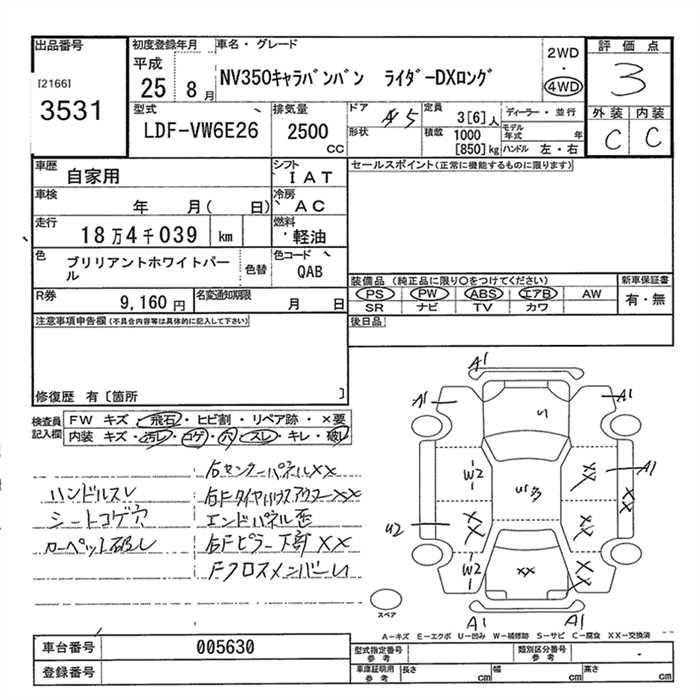 出品番号
[2166]
3531
初度登録年月
平成
25 8月
車名・グレード
NV350キャラバンバン ライダーDXロング
2WD
・
4WD
評価点
3
外装 内装
C C
型式
LDF-VW6E26
排気量
2500
CC
ドア
5
形状
定員
3[6]人
積載 1000
[850]kg
ディーラー・並行
モデル年式 年
ハンドル 左・右
車歴
自家用
シフト
IAT
車検
年 月( 日)
冷房
AC
走行
18万4千039 km
燃料
軽油
色
ブリリアントホワイトパール
色替
色コード
QAB
R券
9,160円
名変通知期限
月 日
セールスポイント(正常に機能するものに限ります)
装備品(純正品に限り〇をつけてください)
PS PW ABS エアB AW
SR ナビ TV カワ
新車保証書
有・無
後日品
注意事項申告欄(不具合内容等は具体的に記入して下さい)
修復歴 有[箇所 ]
検査員記入欄
FW キズ・飛石・ヒビ割・リペア跡・×要
内装 キズ・汚レ・コゲ・穴・スレ・キレ・破レ
右センターパネルXX
ハンドルスレ
右FタイヤハウスアウターXX
シートコゲ穴
エンドパネル歪
カーペット破レ
右Fピラー下部XX
Fクロスメンバーレ
A1
A1
A1
W2
XX
A1
XX
U2
XX
XX
W2
XX
XX
A1
A1
スペア
A-キズ E-エクボ U-凹み W-補修跡 S-サビ C-腐食 XX-交換済
車台番号
005630
登録番号
型式指定番号
参考
類別区分番号
参考
車庫証明用
参考
長さ cm
幅 cm
高さ cm